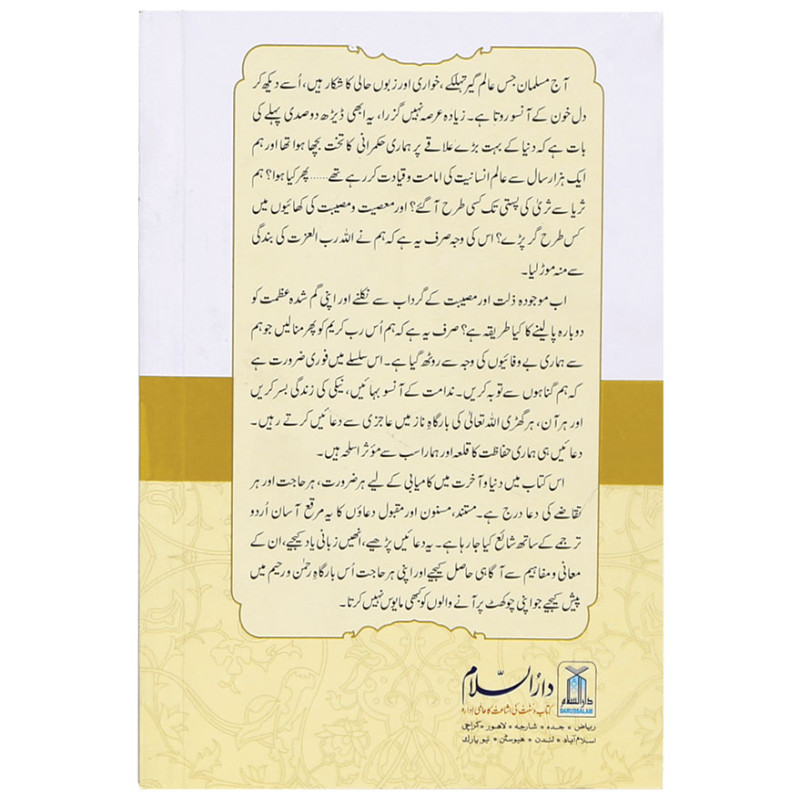 آج مسلمان جس عالم گیر تہلکے، خواری اور زبوں حالی کا شکار ہیں، اُسے دیکھ کر
دل خون کے آنسو روتا ہے۔ زیادہ عرصہ نہیں گزرا، یہ ابھی ڈیڑھ دو صدی پہلے کی
بات ہے کہ دنیا کے بہت بڑے علاقے پر ہماری حکمرانی کا تخت بچھا ہوا تھا اور ہم
ایک ہزار سال سے عالمِ انسانیت کی امامت و قیادت کر رہے تھے...... پھر کیا ہوا؟ ہم
ثریا سے ثریٰ کی پستی تک کس طرح آ گئے؟ اور معصیت و مصیبت کی کھائیوں میں
کس طرح گر پڑے؟ اس کی وجہ صرف یہ ہے کہ ہم نے اللہ رب العزت کی بندگی
سے منہ موڑ لیا۔
اب موجودہ ذلت اور مصیبت کے گرداب سے نکلنے اور اپنی گم شدہ عظمت کو
دوبارہ پا لینے کا کیا طریقہ ہے؟ صرف یہ ہے کہ ہم اُس رب کریم کو پھر منا لیں جو ہم
سے ہماری بے وفائیوں کی وجہ سے روٹھ گیا ہے۔ اس سلسلے میں فوری ضرورت ہے
کہ ہم گناہوں سے توبہ کریں۔ ندامت کے آنسو بہائیں، نیکی کی زندگی بسر کریں
اور ہر آن، ہر گھڑی اللہ تعالیٰ کی بارگاہِ ناز میں عاجزی سے دعائیں کرتے رہیں۔
دعائیں ہی ہماری حفاظت کا قلعہ اور ہمارا سب سے مؤثر اسلحہ ہیں۔
اس کتاب میں دنیا و آخرت میں کامیابی کے لیے ہر ضرورت، ہر حاجت اور ہر
تقاضے کی دعا درج ہے۔ مستند، مسنون اور مقبول دعاؤں کا یہ مرقع آسان اُردو
ترجمے کے ساتھ شائع کیا جا رہا ہے۔ یہ دعائیں پڑھیے، انھیں زبانی یاد کیجیے، ان کے
معانی و مفاہیم سے آگاہی حاصل کیجیے اور اپنی ہر حاجت اُس بارگاہِ رحمٰن و رحیم میں
پیش کیجیے جو اپنی چوکھٹ پر آنے والوں کو کبھی مایوس نہیں کرتا۔
دارالسلام
DARUSSALAM
دارُالسّلام
کتاب و سنت کی اشاعت کا عالمی ادارہ
ریاض • جدہ • شارجہ • لاہور • کراچی
اسلام آباد • لندن • ہیوسٹن • نیو یارک